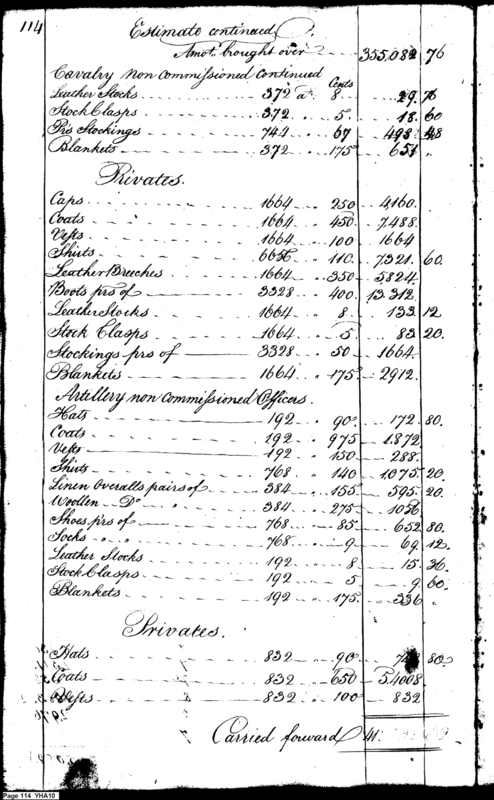 114
Estimate continued.
Amot. brought over 355.082 76
Cavalry non commissioned continued
Cents
Leather Stocks 372 a 8 29. 76
Stock Clasps 372 5 18. 60
Prs Stockings 744 67 498. 48
Blankets 372 175 651 "
Privates.
Caps 1664 250 4160.
Coats 1664 450 7.488.
Vests 1664 100 1664
Shirts 6656 110 7321. 60.
Leather Breeches 1664 350 5824.
Boots prs of 3328 400. 13.312.
Leather Stocks 1664 8 133. 12
Stock Clasps 1664 5 83. 20.
Stockings prs of 3328 50 1664.
Blankets 1664 175 2912.
Artillery non commissioned Officers.
Hats 192 90 172. 80.
Coats 192 975 1.872
Vests 192 150 288.
Shirts 768 140 1.075. 20.
Linen Overalls pairs of 384 155 595. 20.
Woollen Do " 384 275 1056
Shoes prs of 768 85 652. 80.
Socks " " 768 9 69. 12.
Leather Stocks 192 8 15. 36.
Stock Clasps 192 5 9. 60.
Blankets 192 175 336 "
Privates.
Hats 832 90 80.
Coats 832 650 5.4008
Vests 832 100 832
Carried forward 41
Page 114 YHA10